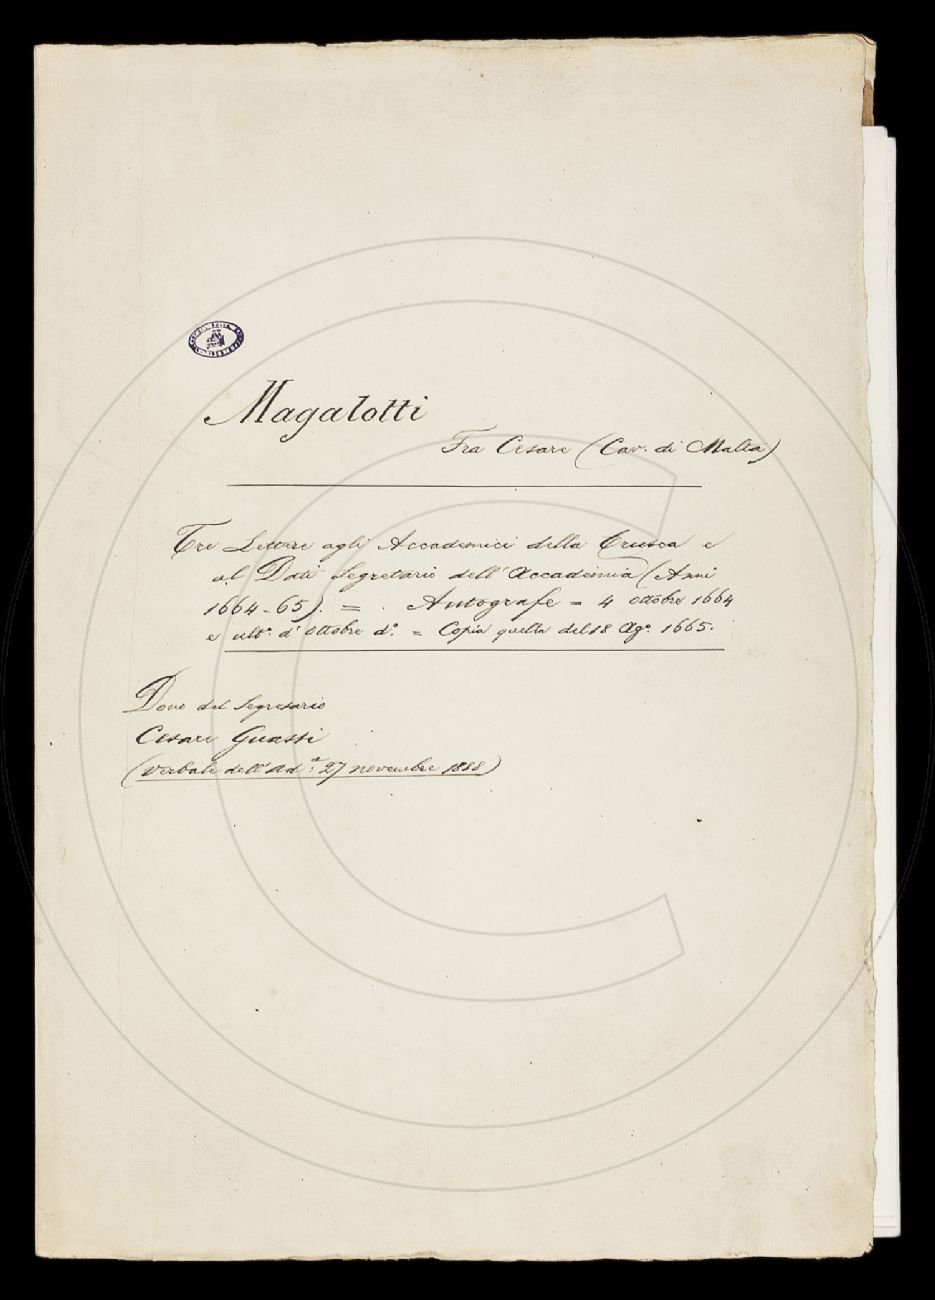 Magalotti
Fra Cesare (Cav. di Malta)
Tre Lettere agli Accademici della Crusca e
al Dati Segretario dell'Accademia (Anni
1664-65). = Autografe = 4 ottobre 1664
e ult.° d'ottobre d.° = Copia quella del 18 Ag.° 1665.
Dono del Segretario
Cesare Guasti
(Verbale dell'Ad.ª 27 novembre 1888)